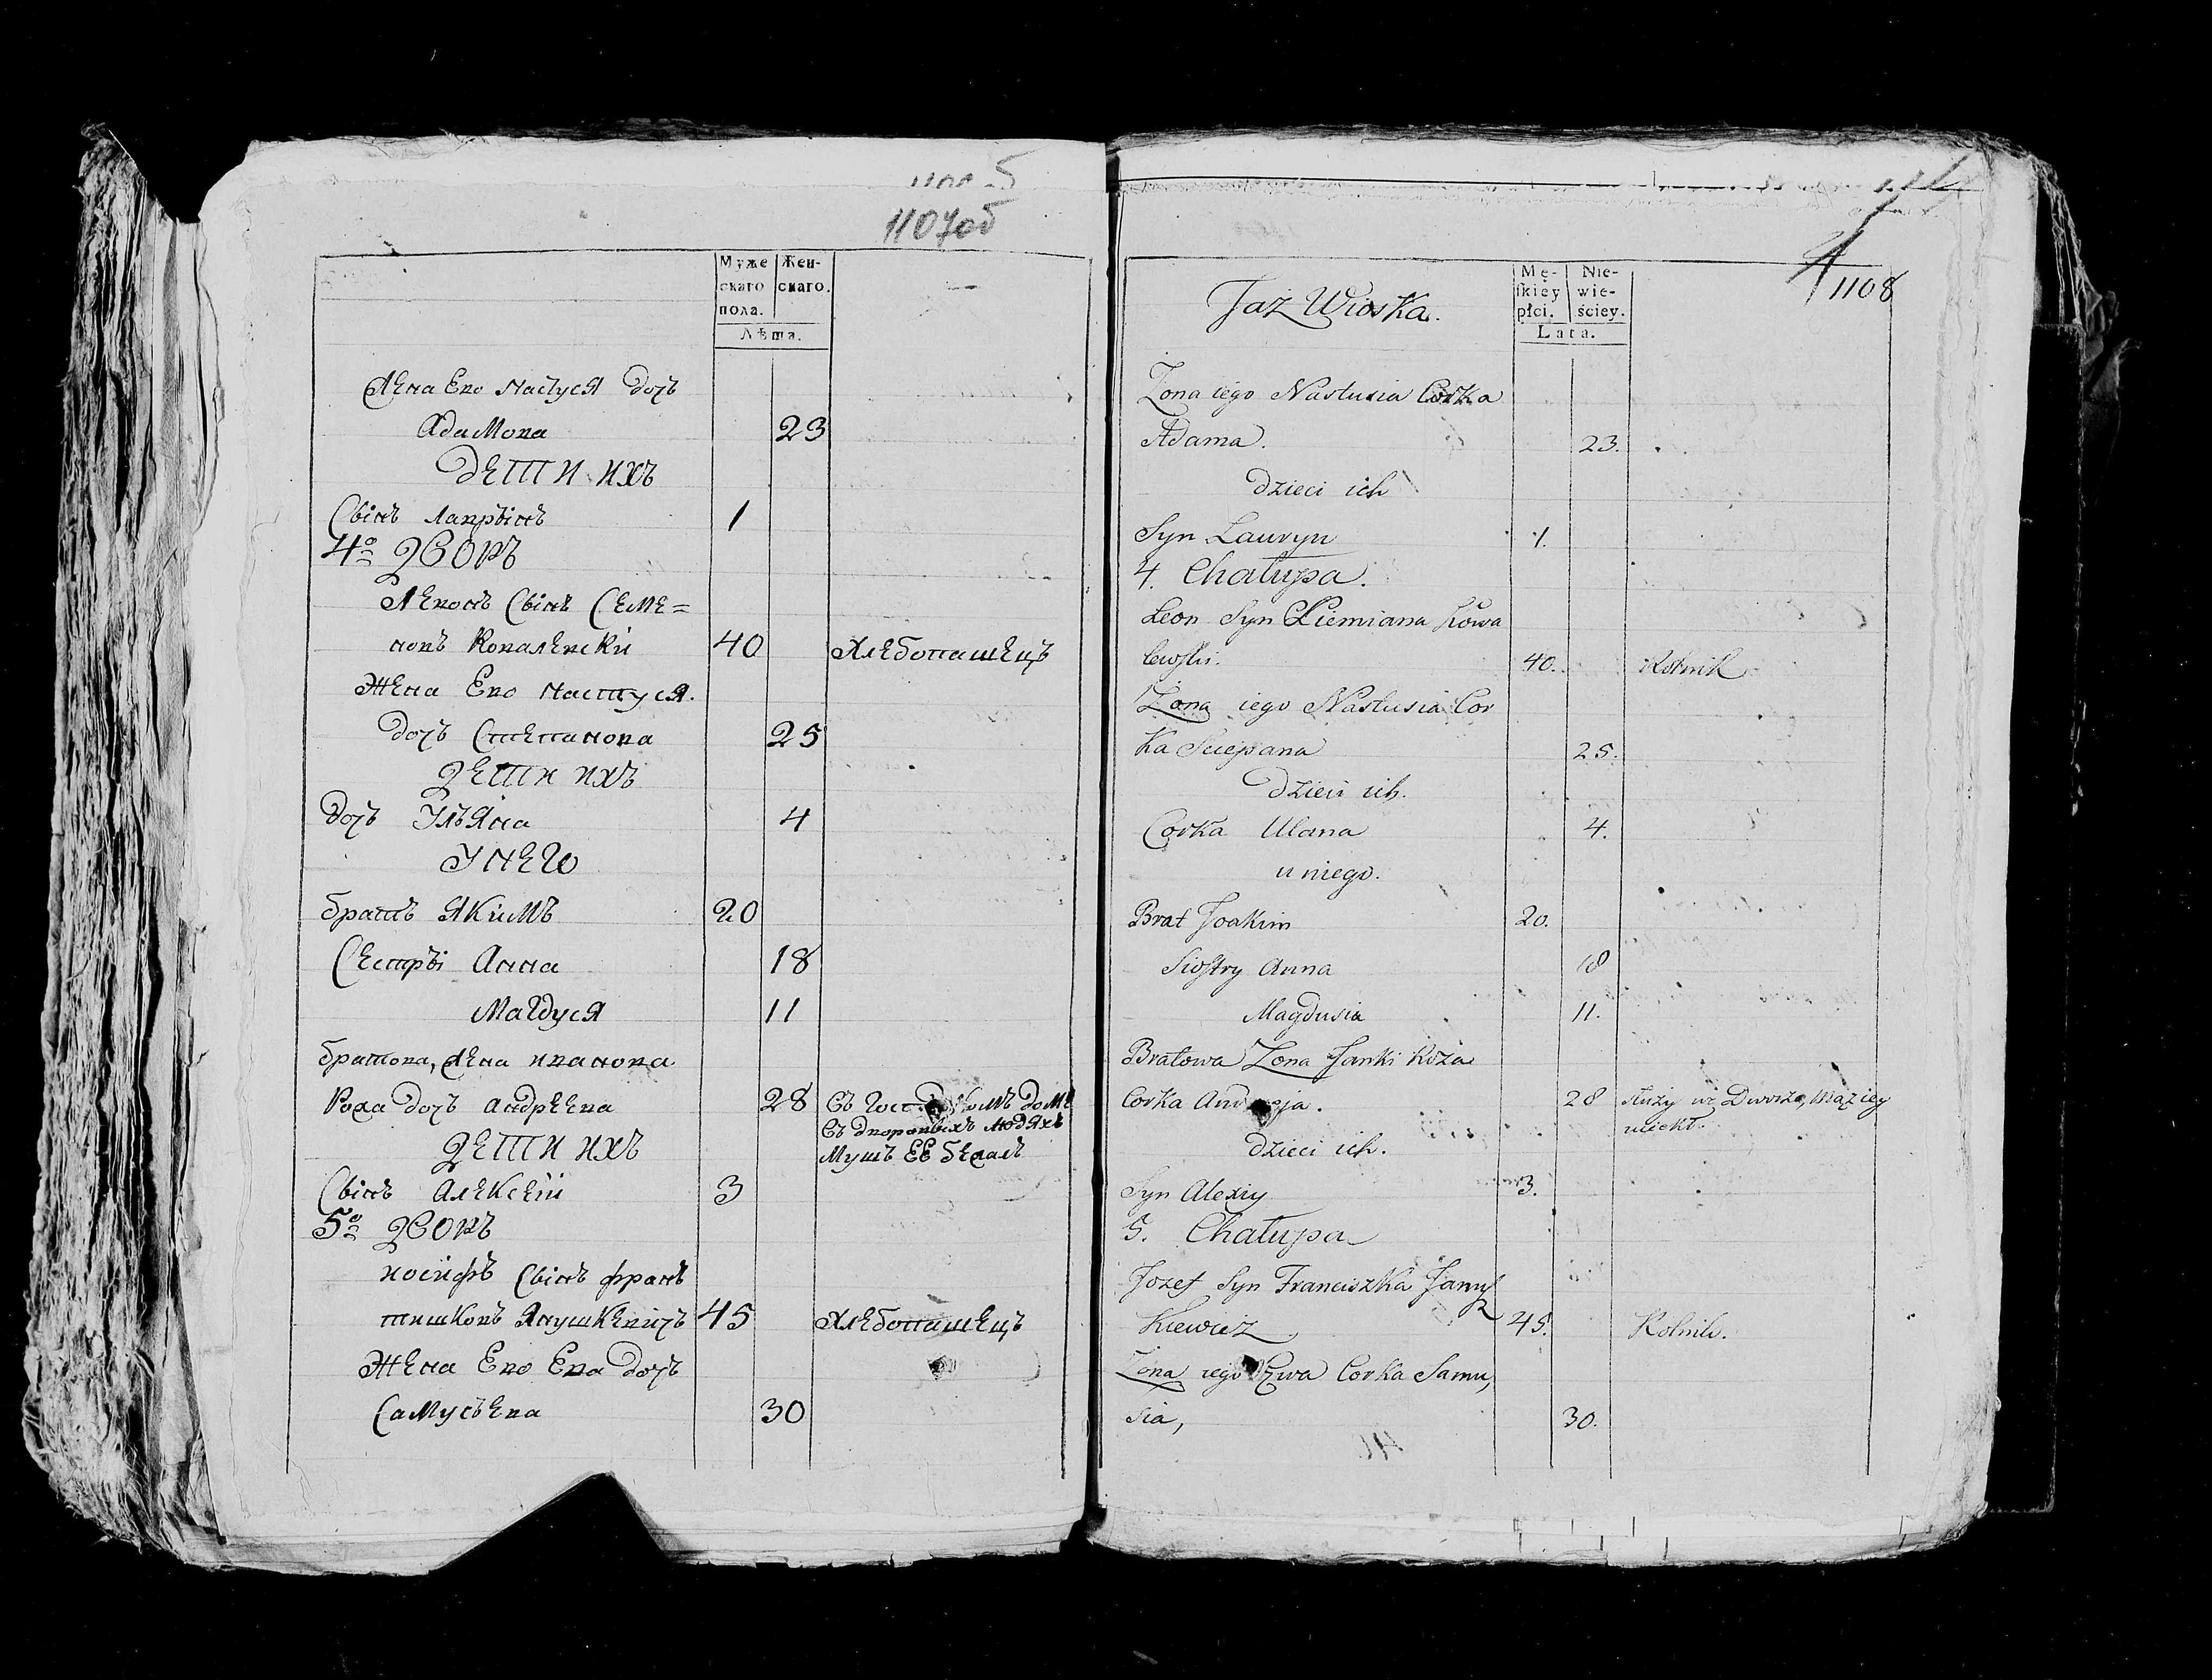 1107об
Муже
скаго
пола.
Жен-
скаго.
Лѣта.
Жена Его Настуся дочь
Адамова 23
дети ихъ
Сынъ Лаврынъ 1
4о дворъ
Левонъ Сынъ Семе=
новъ Ковалевски 40 Хлебопашецъ
Жена Его Настуся.
дочь Степанова 25
дети ихъ
дочь Ульяна 4
У него
братъ Якимъ 20
Сестры Анна 18
Магдуся 11
братова, жена иванова
Рожа дочь андреева 28 въ домѣ
въ дворовыхъ людяхъ
мужъ её бежалъ
дети ихъ
Сынъ Алексей 3
5о дворъ
иосифъ Сынъ франъ
тишковъ Янушкевичъ 45 Хлебопашецъ
Жена Его Ева дочь
Самусьева 30
1108
Jaz Wioska.
Mę-
ſkiey
płci.
Nie-
wie-
ściey.
Lata.
Zona iego Nastusia Corka
Adama. 23.
dzieci ich
Syn Lauryn 1.
4. Chałupa.
Leon Syn Siemiana Kowa
lewſki. 40. Rolnik
Zona iego Nastusia Cor
ka Sciepana 25.
dzieci ich.
Corka Ulana 4.
u niego.
Brat Joakim 20.
Siostry Anna 18
Magdusia 11.
Bratowa Zona Janki Roza
Corka Andreja. 28 służy we Dworze, mąż iey
uciekł.
dzieci ich.
Syn Alexiy 3.
5. Chałupa
Jozef Syn Franciszka Janusz
kiewicz 45. Rolnik.
Zona iego Ewa Corka Samu,
sia, 30.